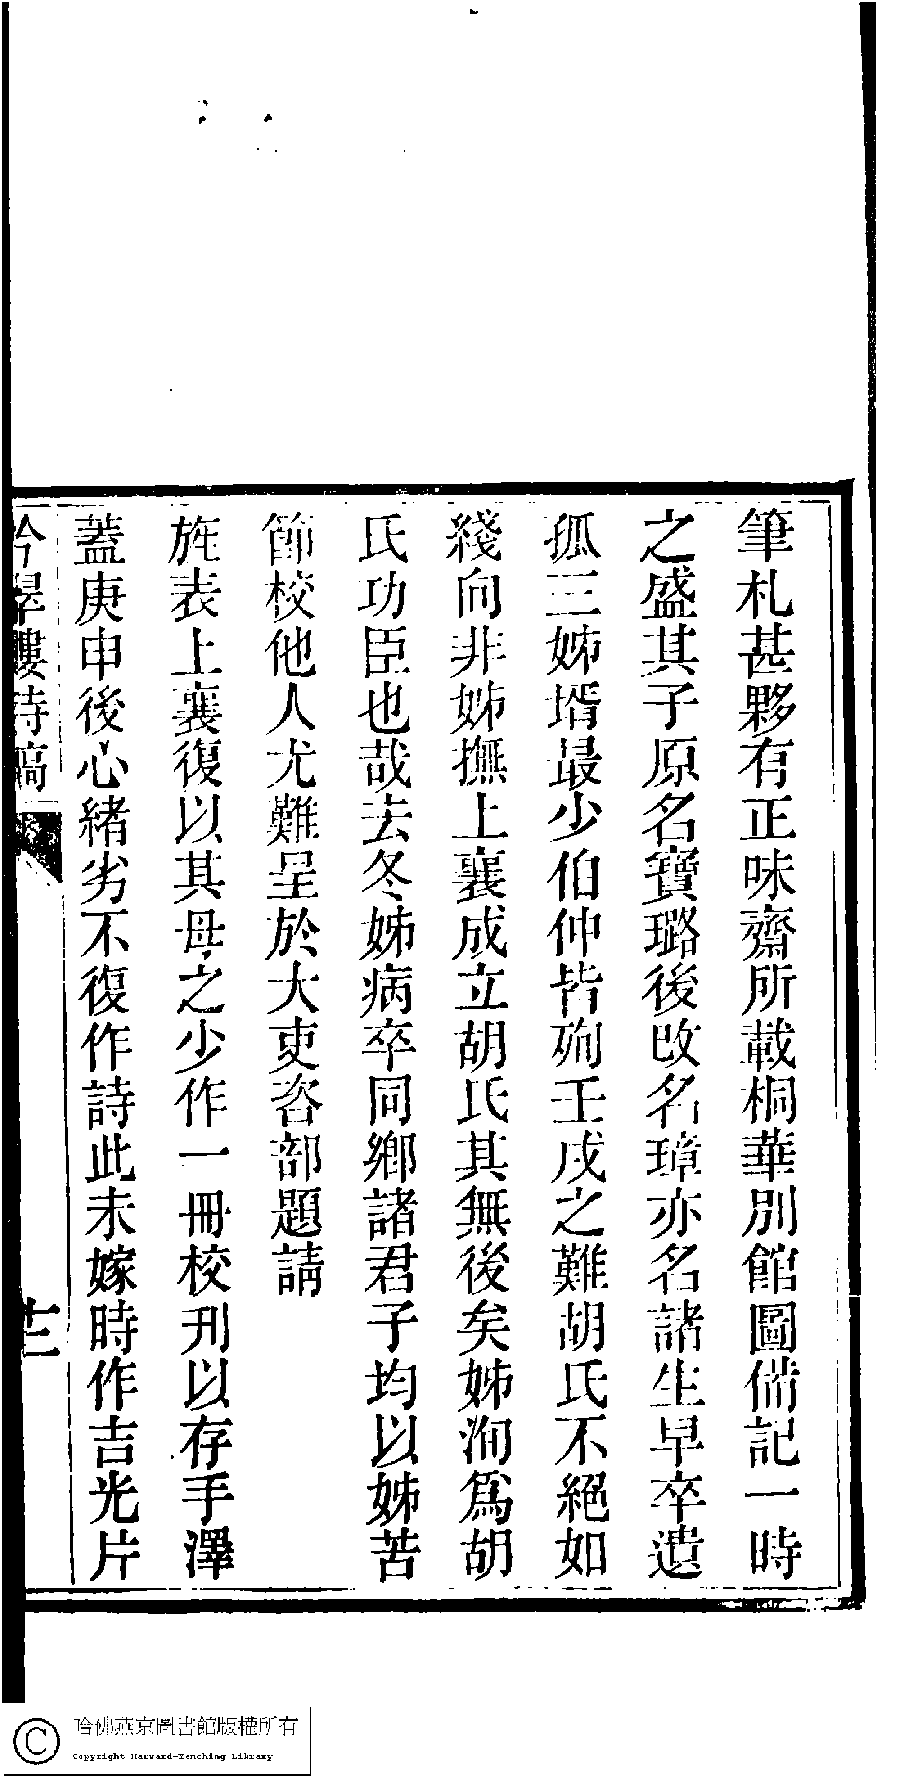 筆札甚夥有正味齋所載桐華別館圖備記一時
之盛其子原名寶璐後改名璋亦名諸生早卒遺
孤三姊壻最少伯仲皆殉壬戌之難胡氏不絕如
綫向非姊撫上襄成立胡氏其無後矣姊洵爲胡
氏功臣也哉去冬姊病卒同鄉諸君子均以姊苦
節校他人尤難呈於大吏咨部題請
旌表上襄復以其母之少作一冊校刊以存手澤
蓋庚申後心緒劣不復作詩此未嫁時作吉光片
吟翠樓詩稿
哈佛燕京圖書館版權所有
Copyright Harvard-Yenching Library